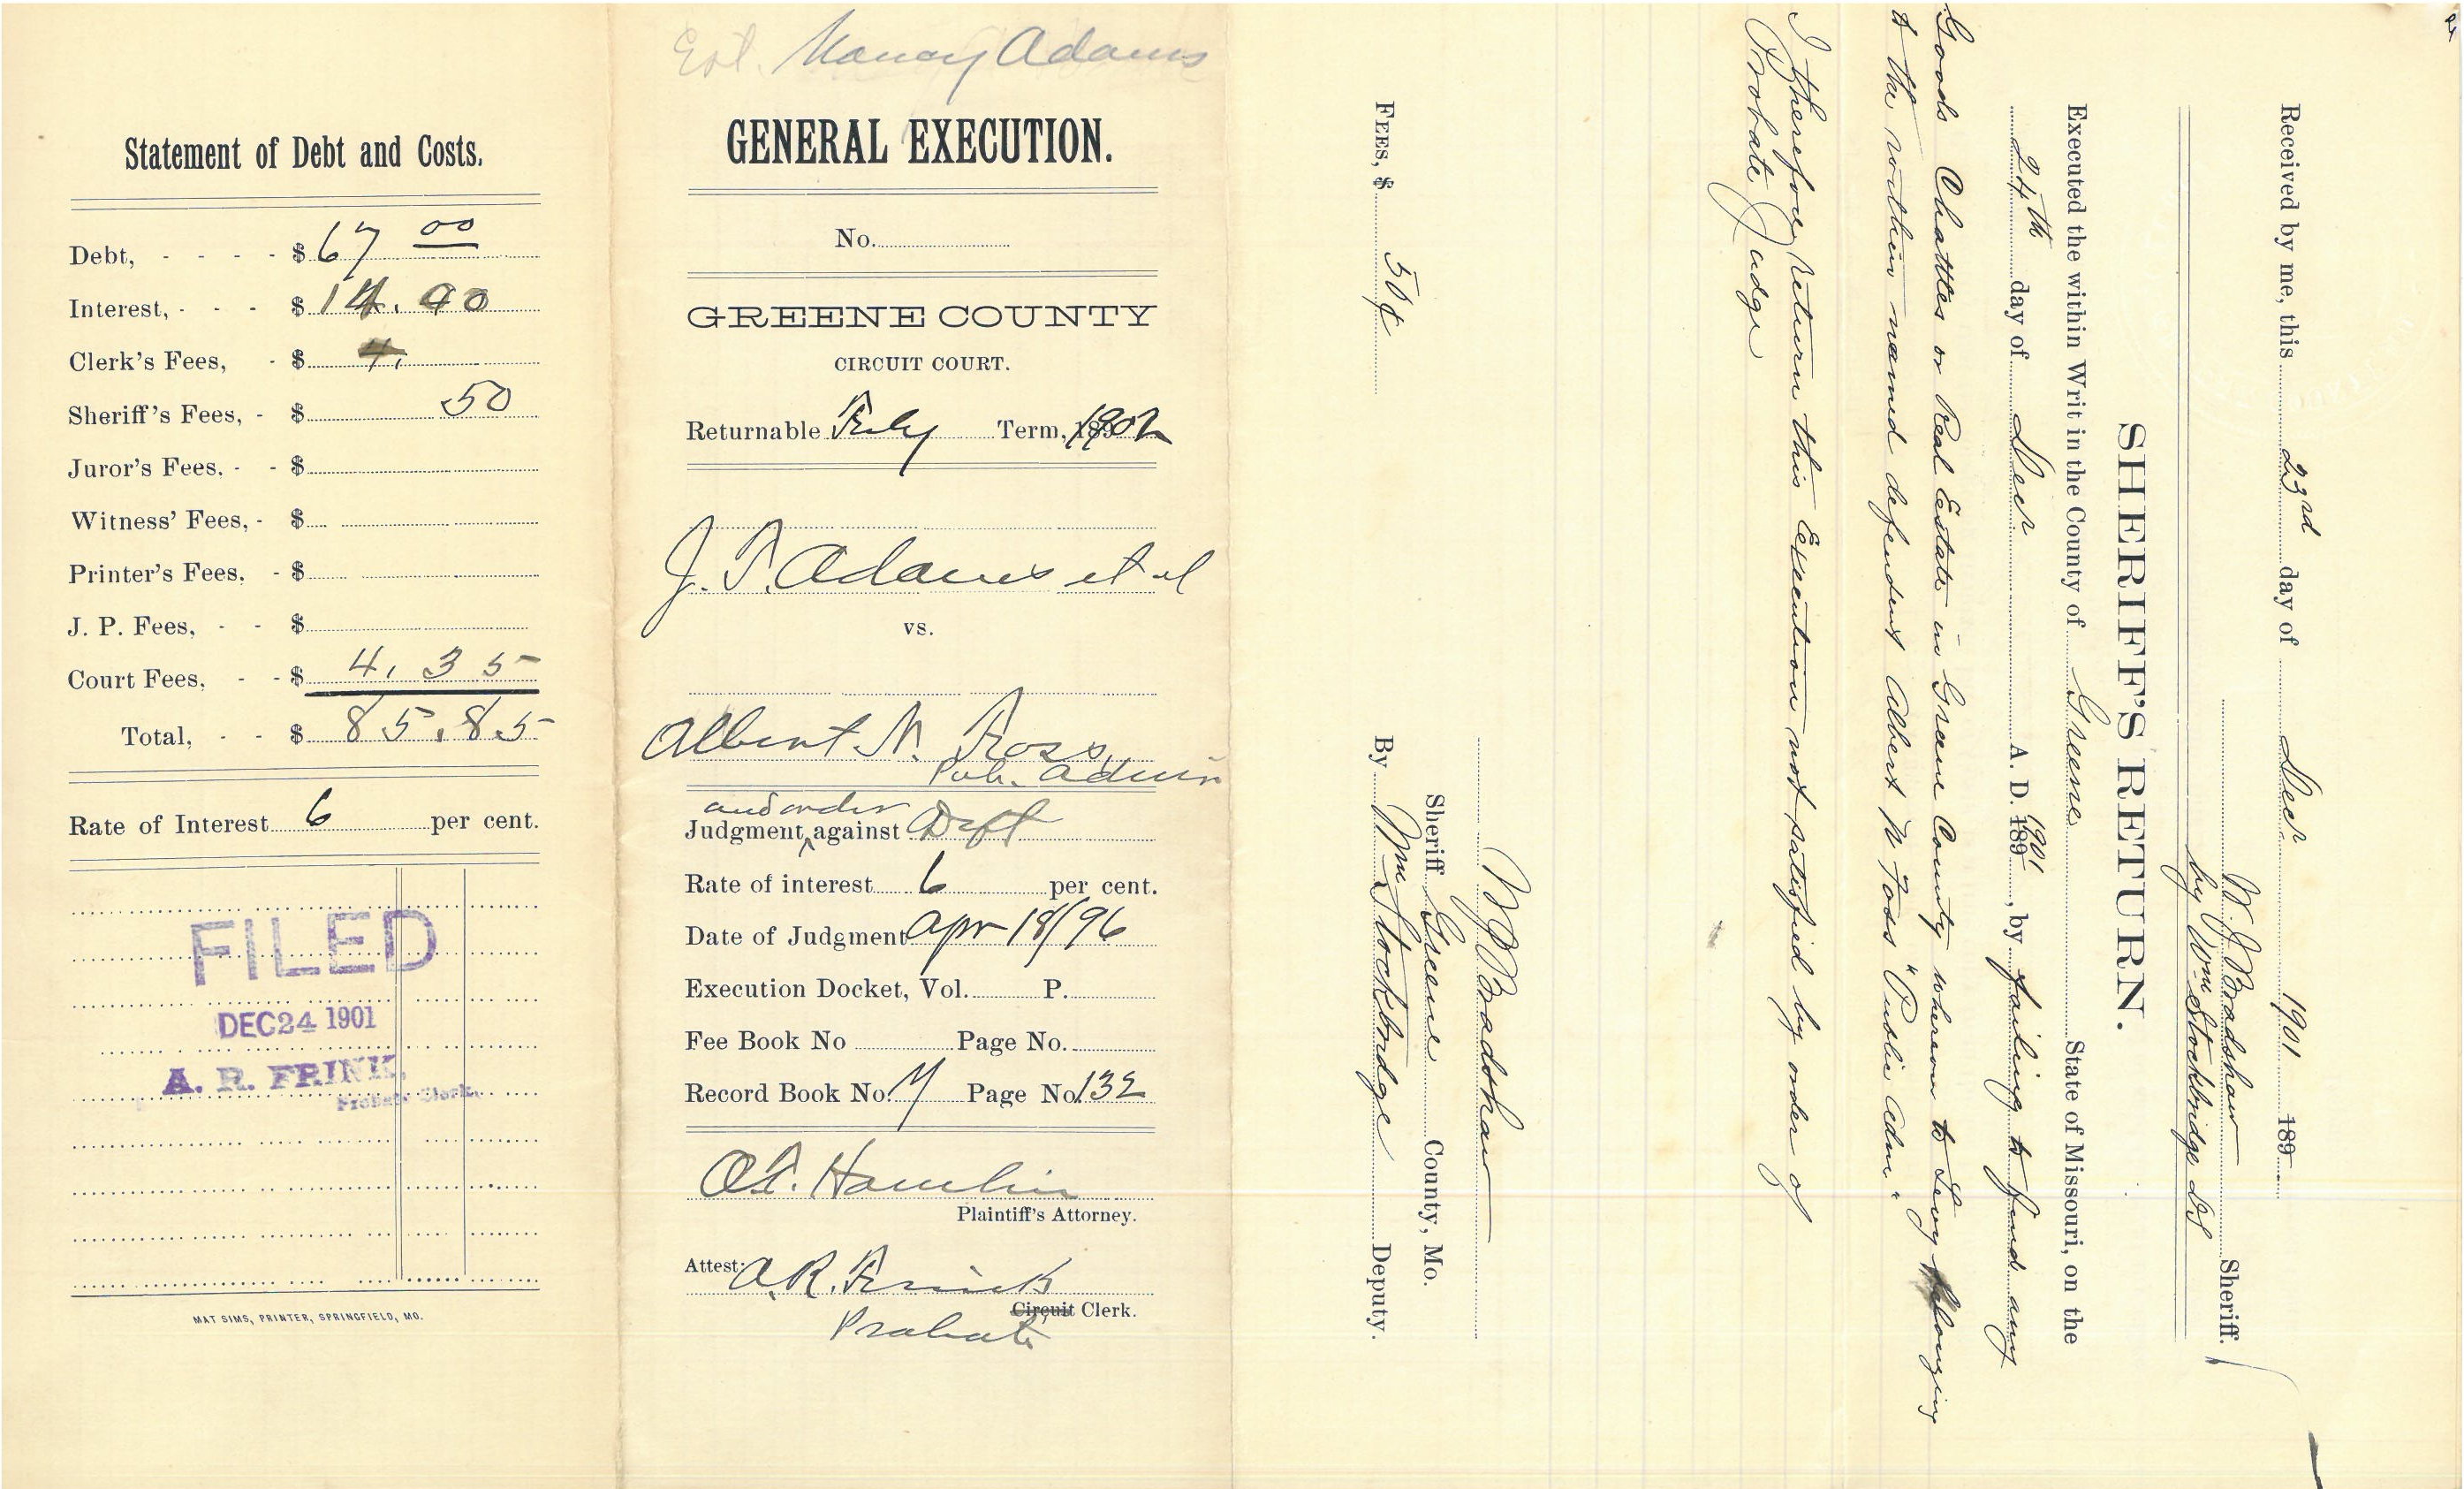 Statement of Debt and Costs.
Debt, - - - - $ 67 00
Interest, - - - $ 14.00
Clerk's Fees, - $ 4.
Sheriff's Fees, - $ 50
Juror's Fees, - - $
Witness' Fees, - $
Printer's Fees, - $
J. P. Fees, - - $
Court Fees, - - $ 4.35
Total, - - $ 85.85
Rate of Interest 6 per cent.
FILED
DEC 24 1901
A. R. FRINK,
Probate Clerk.
MAT SIMS, PRINTER, SPRINGFIELD, MO.
Est. Nancy Adams
GENERAL EXECUTION.
No.
GREENE COUNTY
CIRCUIT COURT.
Returnable Feby Term, 1902
J. F. Adams et al
vs.
Albert N. Foss,
Pub. Admin
and order
Judgment, against Deft
Rate of interest 6 per cent.
Date of Judgment Apr 18/96
Execution Docket, Vol. P.
Fee Book No Page No.
Record Book No. Page No. 132
O.T. Hamlin
Plaintiff's Attorney.
Attest: A. R. Frink
Circuit Clerk.
Probate
Received by me, this 23rd day of Decr 1901 189
W. J. Bradshaw Sheriff.
by Wm Stockbridge DS
SHERIFF'S RETURN.
Executed the within Writ in the County of Greene State of Missouri, on the
24th day of Decr A. D. 189 1901, by failing to find any
Goods Chattles or Real Estate in Greene County whereon to Levy belonging
to the within named defendent Albert N Foss "Public Adm"
I therefore return this Execution not satisfied by order of
Probate Judge
W J Bradshaw
Sheriff Greene County, Mo.
FEES, $ 50¢ By Wm Stockbridge Deputy.